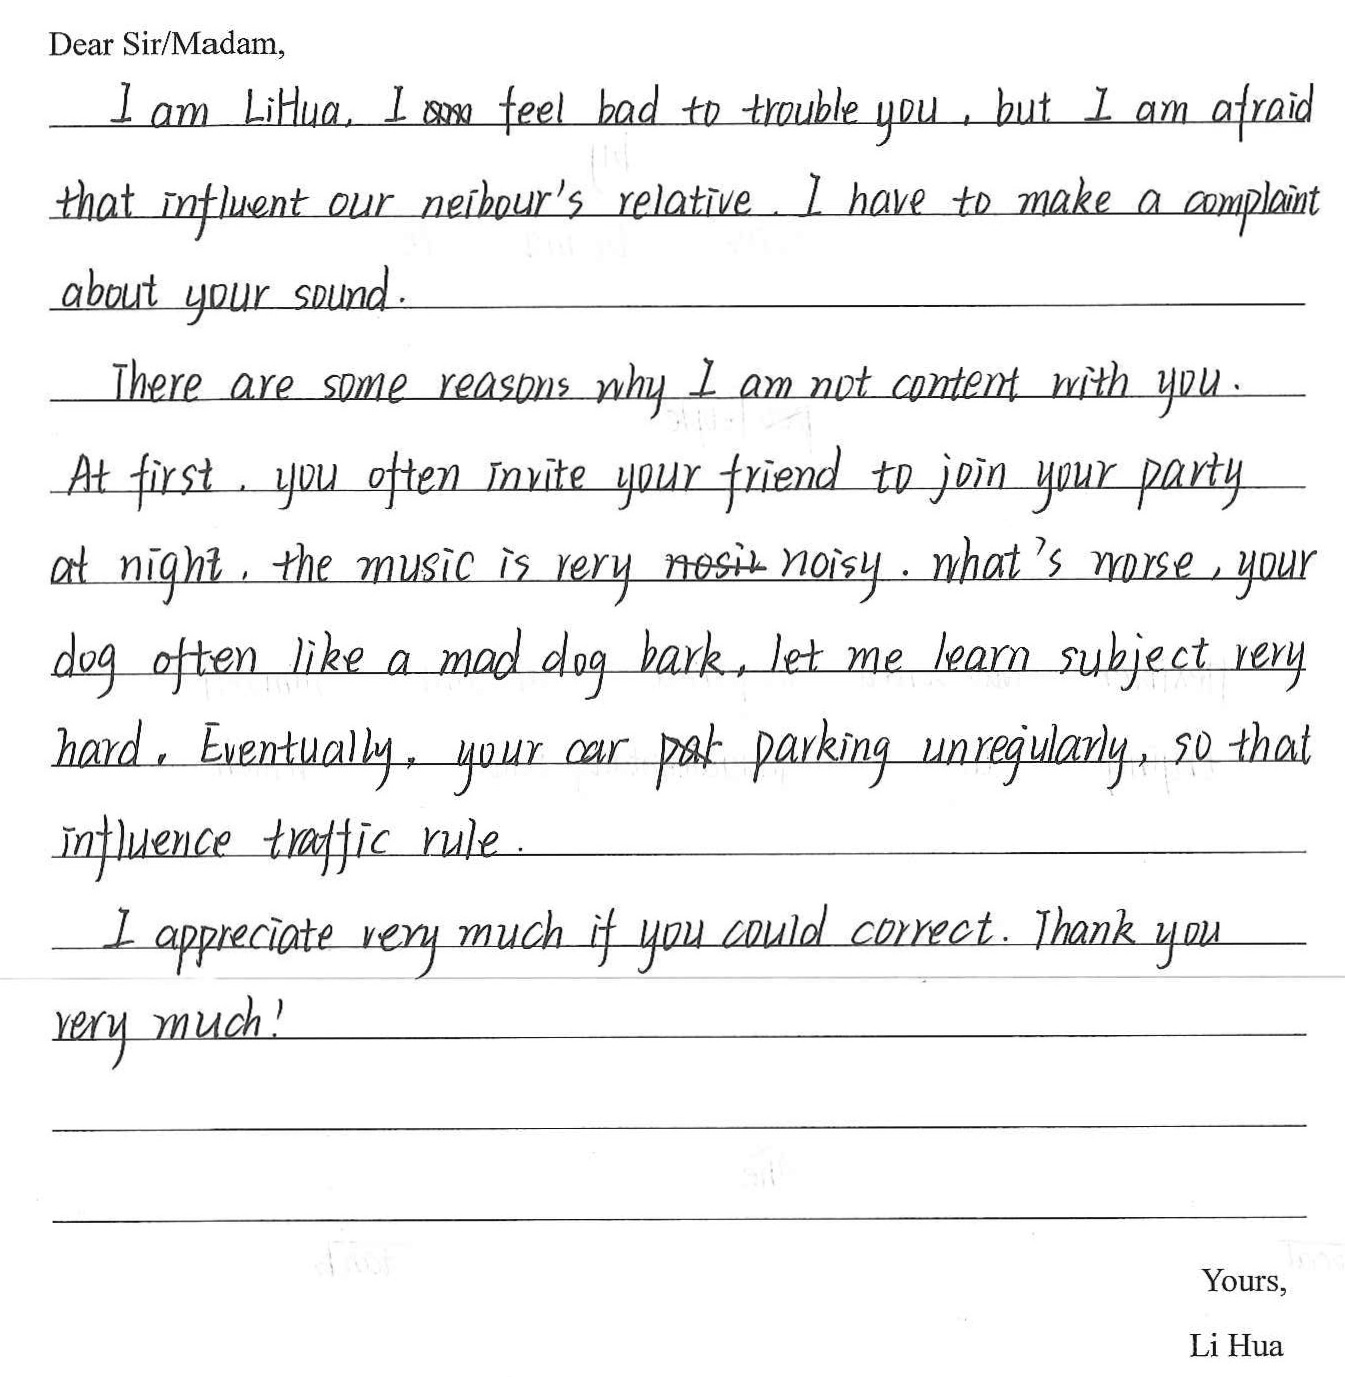 Dear Sir/Madam,
I am LiHua. I feel bad to trouble you, but I am afraid
that influent our neibour's relative. I have to make a complaint
about your sound.
There are some reasons why I am not content with you.
At first, you often invite your friend to join your party
at night, the music is very nosik noisy. what's worse, your
dog often like a mad dog bark, let me learn subject very
hard. Eventually, your car pak parking unregularly, so that
influence traffic rule.
I appreciate very much if you could correct. Thank you
very much!
Yours,
Li Hua